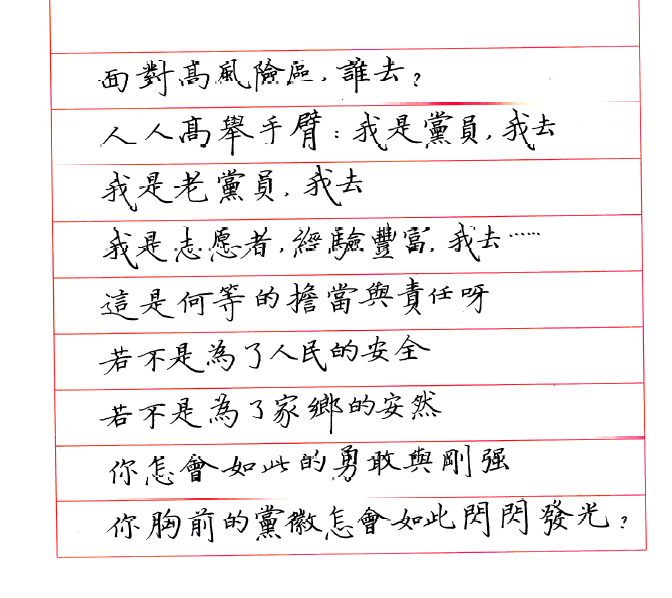 面對高風險區，誰去？
人人高舉手臂：我是黨員，我去
我是老黨員，我去
我是志愿者，經驗豐富，我去……
這是何等的擔當與責任呀
若不是為了人民的安全
若不是為了家鄉的安然
你怎會如此的勇敢與剛强
你胸前的黨徽怎會如此閃閃發光？